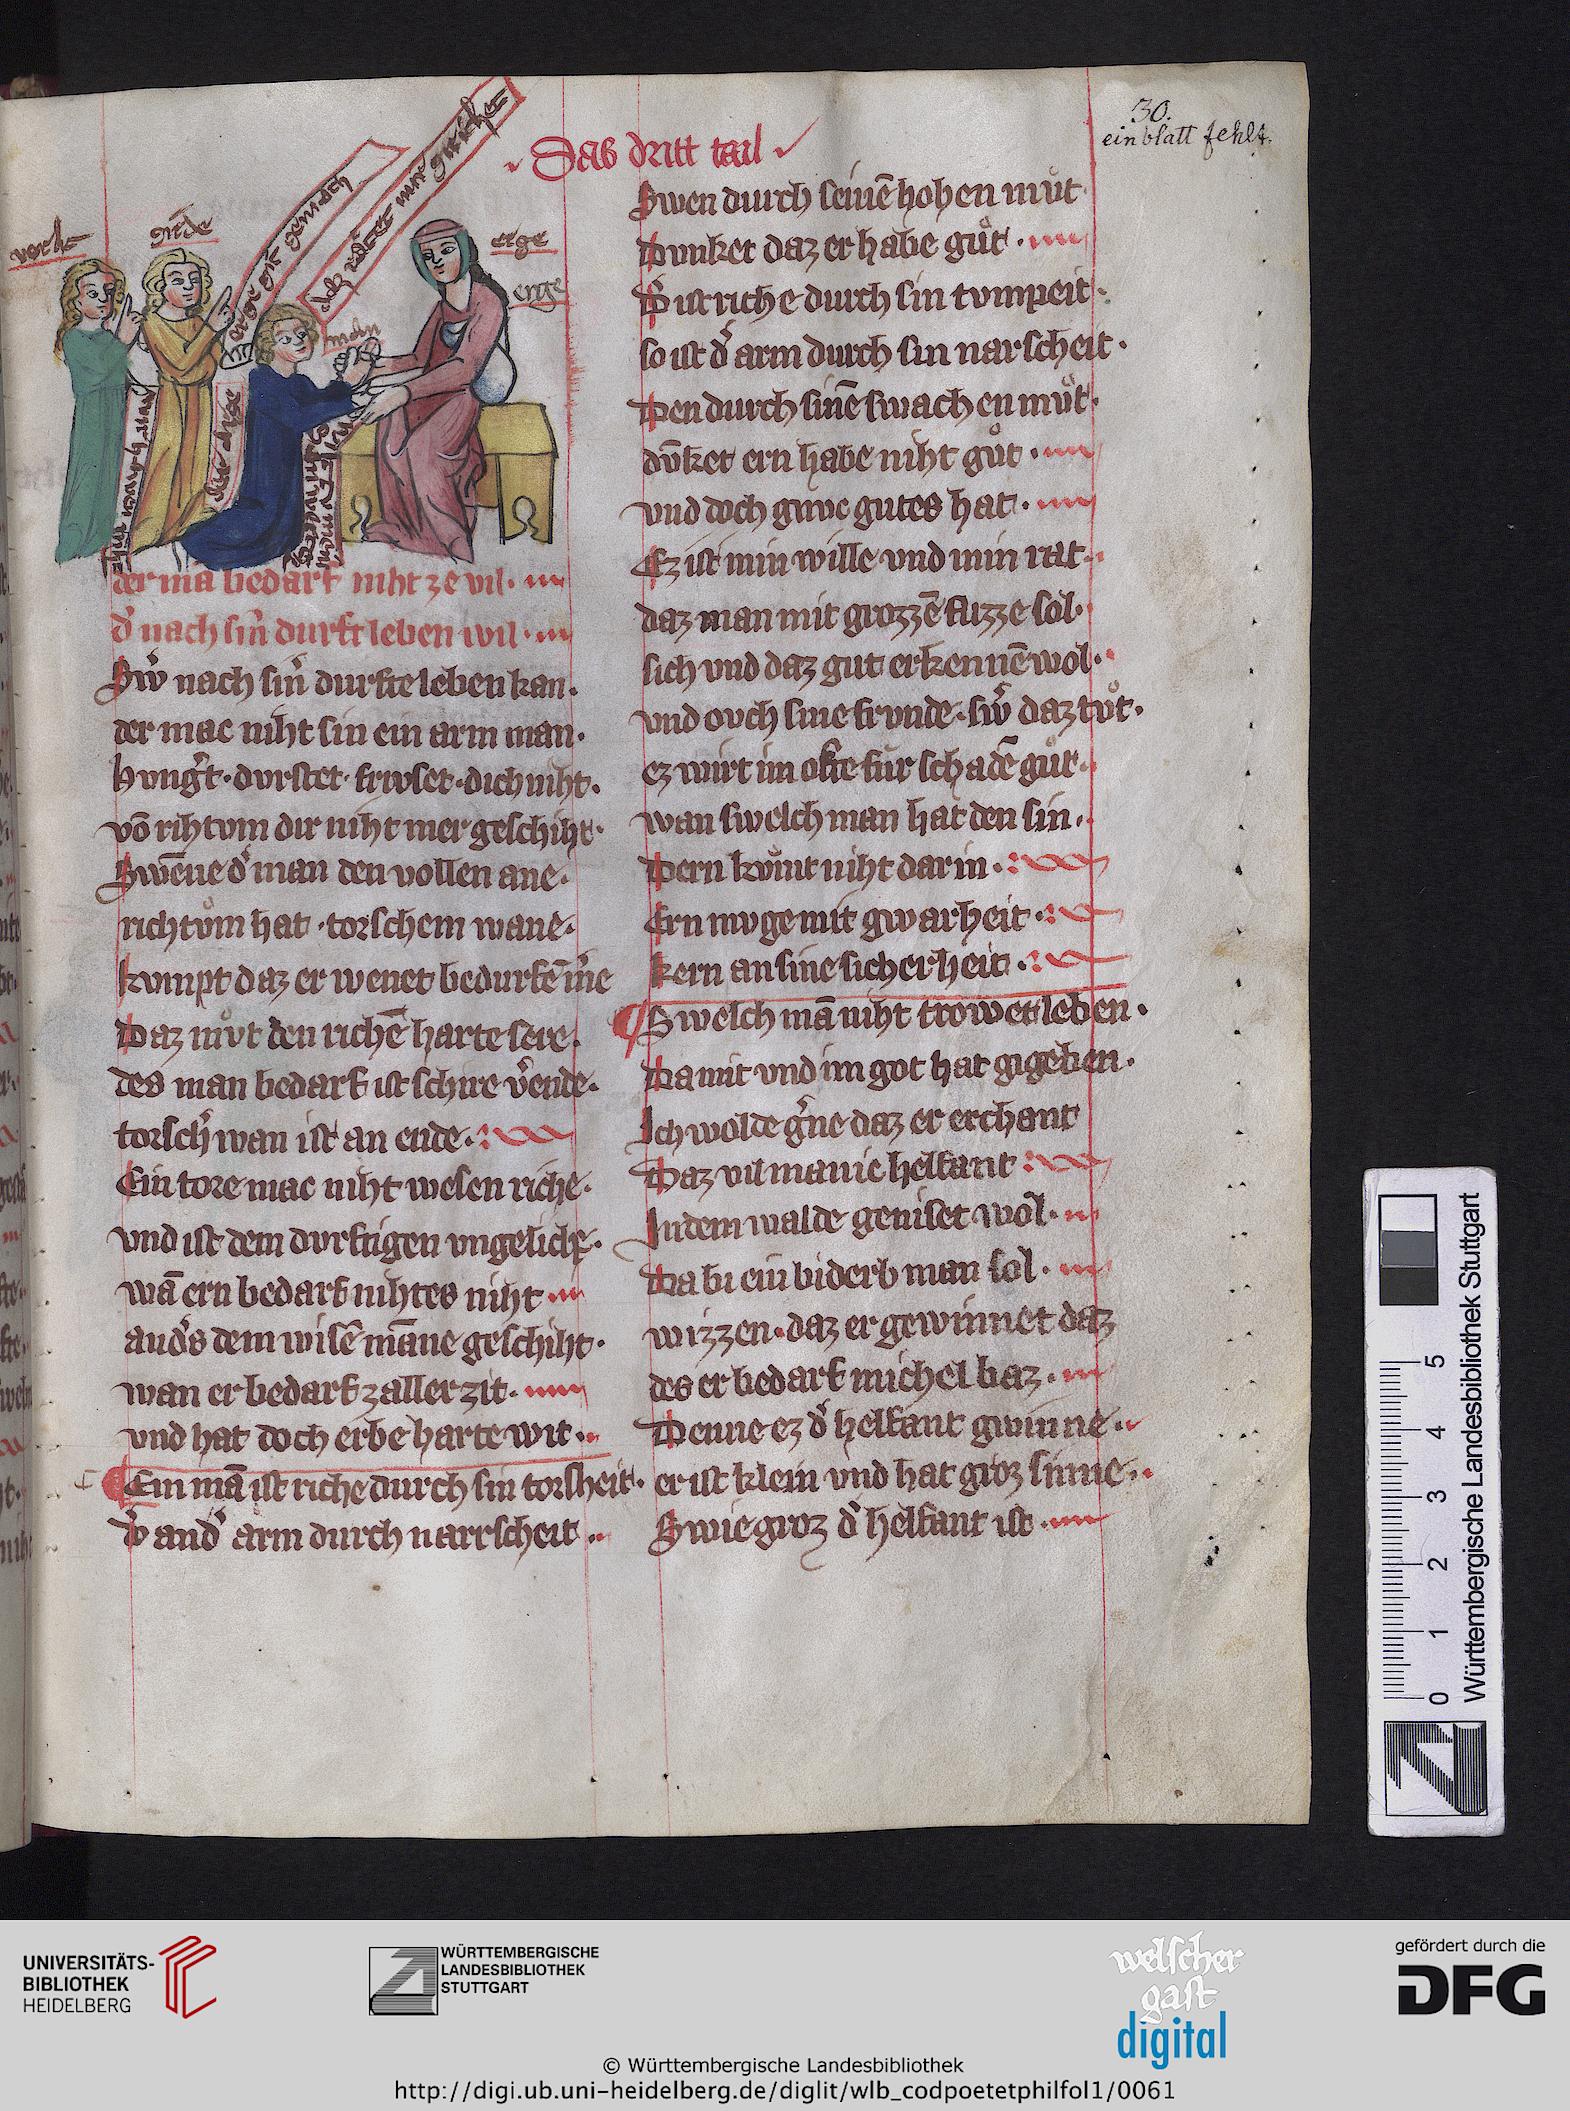 30.
ein blatt fehlt.
Das dritt tail
vorht
girde
erge
erge
man
erge git gemach
daz
der ma bedarf niht ze vil.
d͛ nach sin͛ durft leben wil.
Sw͛ nach sin͛ durfte leben kan.
der mac niht sin ein arm man.
hvng͛t. dvrstet. frivset. dich niht.
vō rihtvm dir niht mer geschiht.
Swēne d͛ man den vollen ane.
richtům hat. torschem wane.
kvmpt daz er wenet bedurfē m͛e
Daz můt den richē harte sere.
des man bedarf ist schire v͛ende.
torsch͛ wan ist an ende.
Ein tore mac niht wesen riche.
vnd ist dem dvrftigen vngelich.
wā ern bedarf nihtes niht
and͛s dem wisē māne geschiht.
wan er bedarf zaller zit.
vnd hat doch erbe harte wit.
Ein mā ist riche durch sin torsheit.
d͛ and͛ arm durch narrscheit
Swen durch seinē hohen můt
Dvnket daz er habe gůt.
D͛ ist riche durch sin tvmpeit.
so ist d͛ arm durch sin narscheit.
Den durch sinē swachen můt.
dv̄ket ern habe niht gůt.
vnd doch gnvc gutes hat.
Ez ist min wille vnd min rat.
daz man mit grozzē flizze sol.
sich vnd daz gut erkennē wol.
vnd ovch sine frvnde. sw͛ daz tůt.
ez wirt im ofte fůr schadē gůt.
wan swelch man hat den sin.
Dern kůmt niht dar in.
Ern mvge mit gwarheit.
kern an sine sicherheit.
Swelch mā niht trowet leben.
Da mit vnd im got hat gigeben.
Ich wolde g͛ne daz er erchant
Daz vil manic helfant
In dem walde geniset wol.
Da bi ein biderb man sol.
wizzen. daz er gewinnet daz
des er bedarf michel baz.
Denne ez d͛ helfant gwinne.
er ist klein vnd hat groz sinne.
Swie groz d͛ helfant ist.
0 1 2 3 4 5
Württembergische Landesbibliothek Stuttgart
UNIVERSITÄTS-
BIBLIOTHEK
HEIDELBERG
WÜRTTEMBERGISCHE
LANDESBIBLIOTHEK
STUTTGART
welscher
gast
digital
gefördert durch die
DFG
© Württembergische Landesbibliothek
http://digi.ub.uni-heidelberg.de/diglit/wlb_codpoetetphilfol1/0061